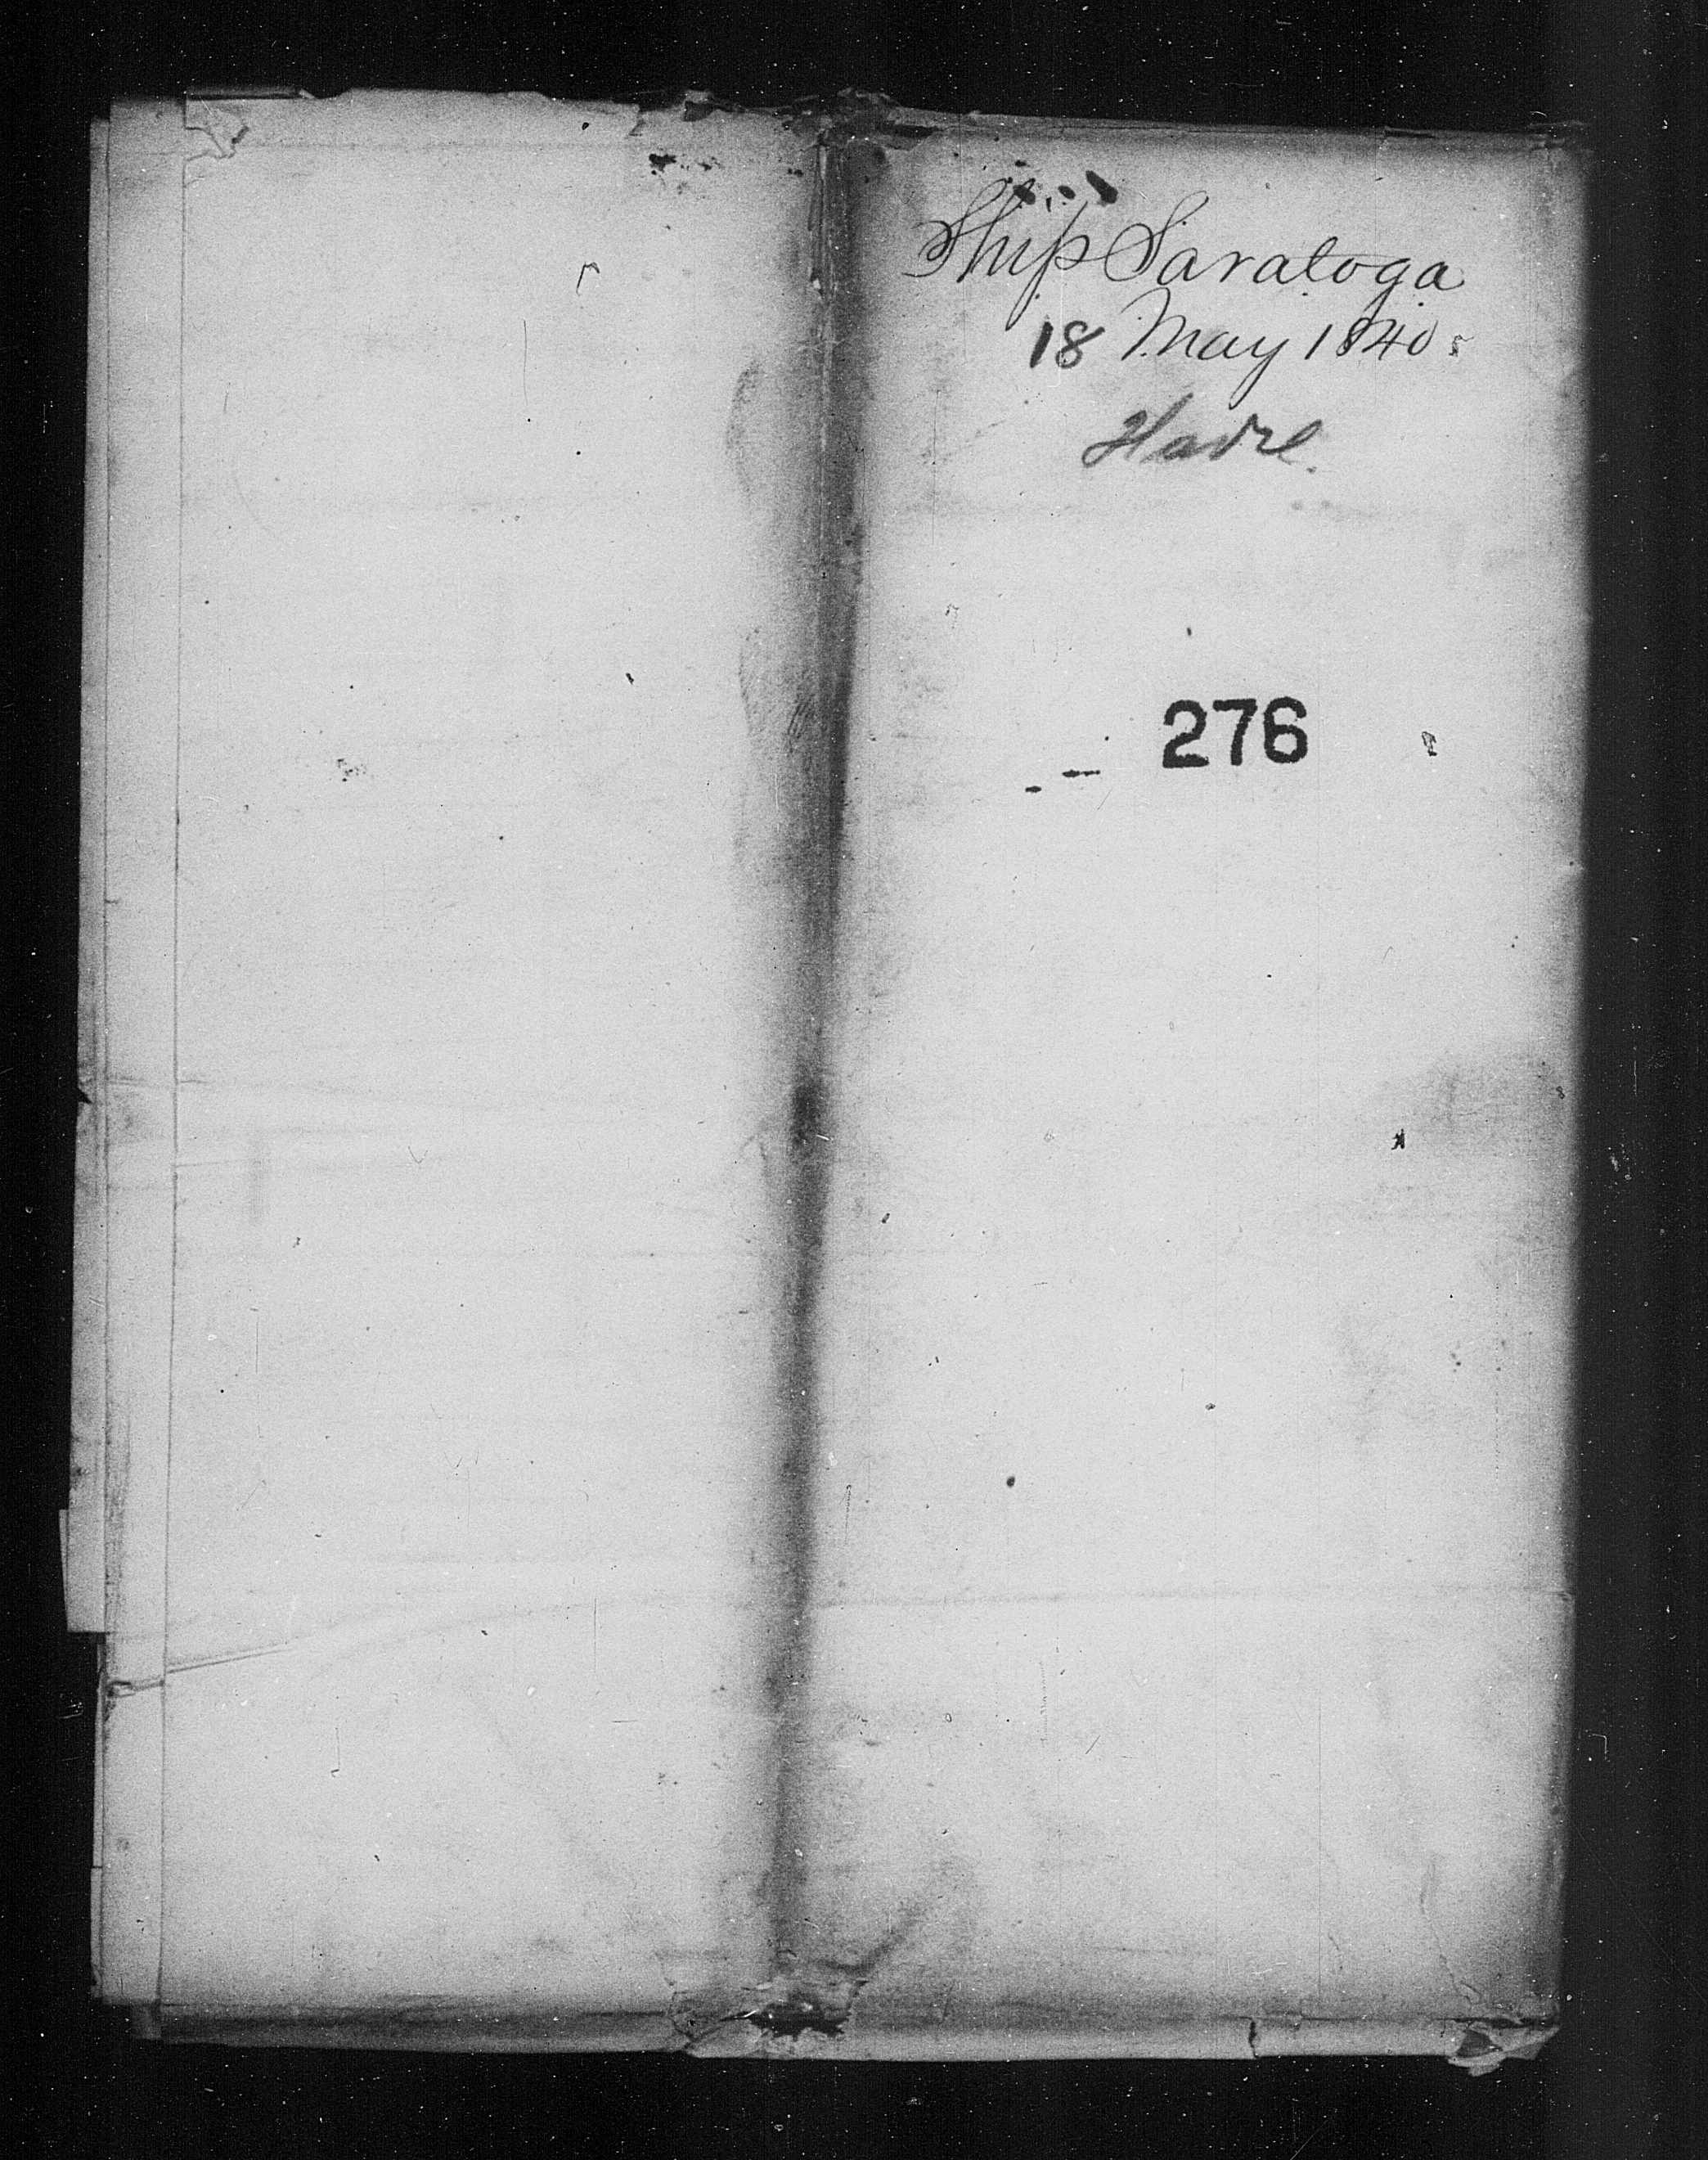 Ship Saratoga
18 May 1840
Havre
276